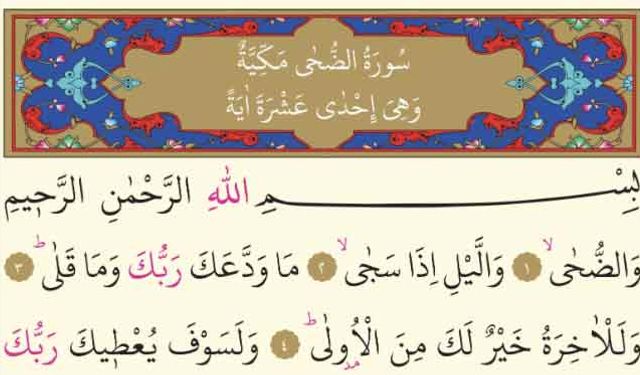 سُورَةُ الضُّحٰى مَكِّيَّةٌ
وَهِىَ إِحْدٰى عَشْرَةَ اٰيَةً
بِسْمِ اللّٰهِ الرَّحْمٰنِ الرَّحٖيمِ
وَالضُّحٰىۙ ﴿١﴾ وَالَّيْلِ اِذَا سَجٰىۙ ﴿٢﴾ مَا وَدَّعَكَ رَبُّكَ وَمَا قَلٰىؕ ﴿٣﴾
وَلَلْاٰخِرَةُ خَيْرٌ لَكَ مِنَ الْاُو۫لٰىؕ ﴿٤﴾ وَلَسَوْفَ يُعْطٖيكَ رَبُّكَ